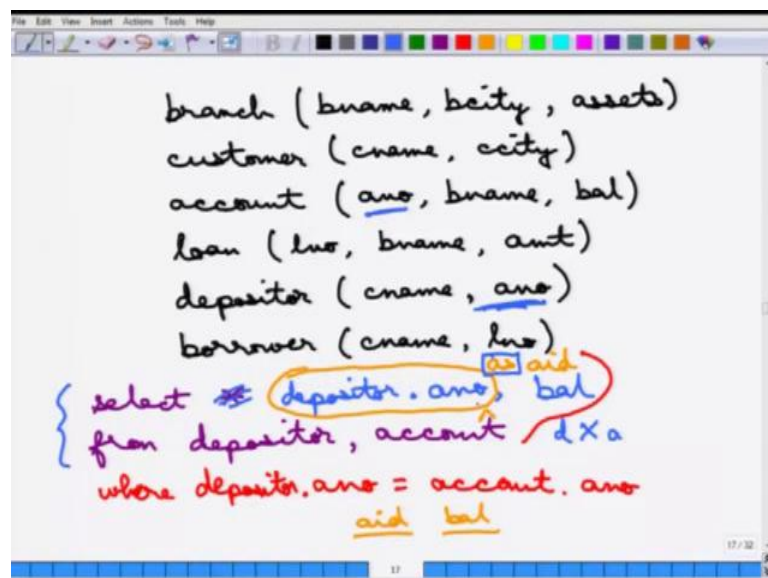 File Edit View Insert Actions Tools Help
branch (bname, bcity, assets)
customer (cname, ccity)
account (ano, bname, bal)
loan (lno, bname, amt)
depositor (cname, ano)
borrower (cname, lno)
as aid
select * depositor.ano, bal
from depositor, account d X a
where depositor.ano = account.ano
aid bal
17/32
17